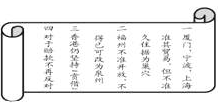 一厦门、宁波、上海
准其贸易，但不准
久住据为巢穴
二福州不准开放，不
得已可改为泉州
三香港仍坚持“赏借”
四对于赔款不再反对